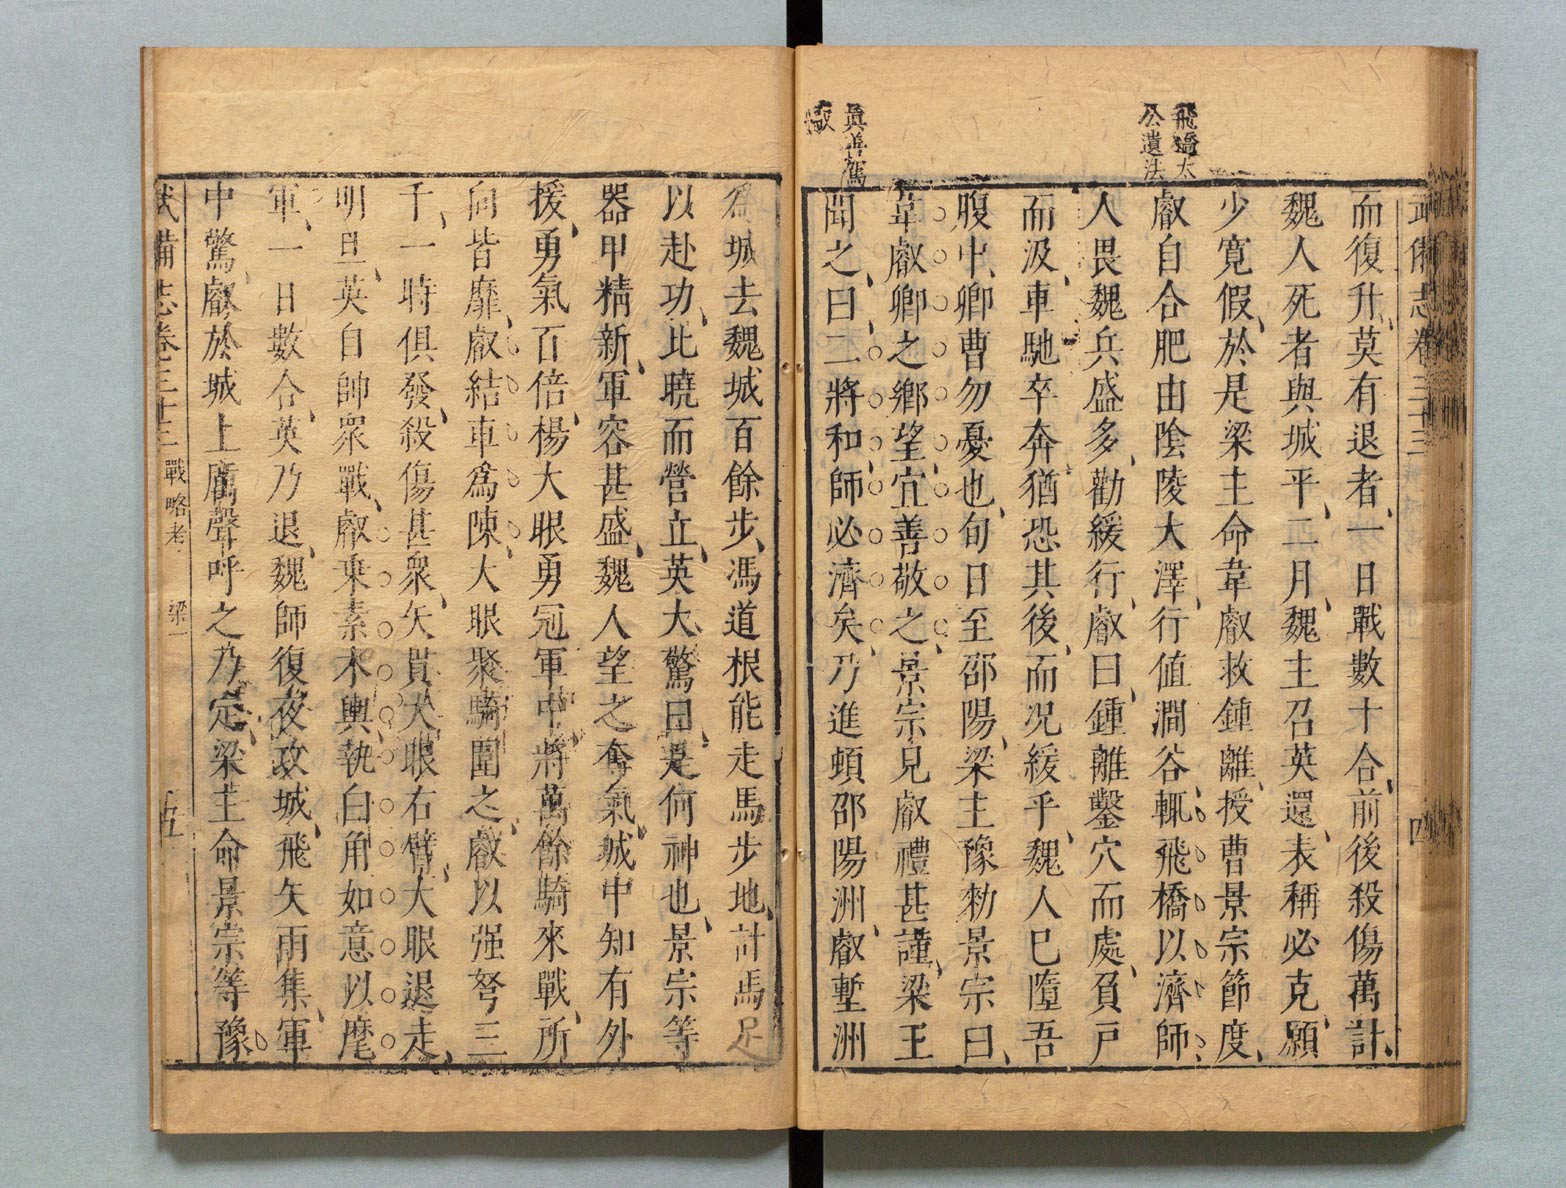 飛橋太
公遺法
眞善駕
馭
武備志卷三十三
四
而復升莫有退者一日戰數十合前後殺傷萬計
魏人死者與城平二月魏主召英還表稱必克願
少寬假於是梁主命韋叡救鍾離授曹景宗節度
叡自合肥由陰陵大澤行值澗谷輒飛橋以濟師
人畏魏兵盛多勸緩行叡曰鍾離鑿穴而處負戸
而汲車馳卒奔猶恐其後而况緩乎魏人已墮吾
腹中卿曹勿憂也旬日至邵陽梁主豫勑景宗曰
韋叡卿之鄕望宜善敬之景宗見叡禮甚謹梁王
聞之曰二將和師必濟矣乃進頓邵陽洲叡塹洲
爲城去魏城百餘步馮道根能走馬步地計馬足
以赴功比曉而營立英大驚曰是何神也景宗等
器甲精新軍容甚盛魏人望之奪氣城中知有外
援勇氣百倍楊大眼勇冠軍中將萬餘騎來戰所
向皆靡叡結車爲陳大眼聚騎圍之叡以强弩二
千一時俱發殺傷甚衆矢貫大眼右臂大眼退走
明旦英自帥衆戰叡乗素木輿執白角如意以麾
軍一日數合英乃退魏師復夜攻城飛矢雨集軍
中驚叡於城上厲聲呼之乃定梁主命景宗等豫
武備志卷三十三 戰略考 梁一
五